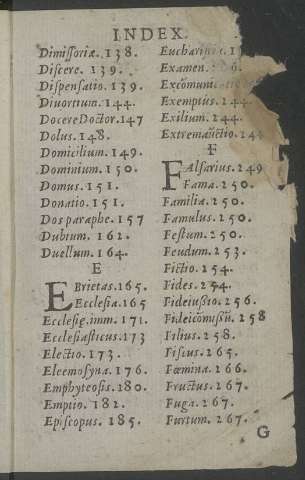 INDEX.
Dimissoriæ. 138.
Discere. 139.
Dispensatio. 139.
Diuortium. 144.
Docere Doctor. 147
Dolus. 148.
Domicilium. 149.
Dominium. 150.
Domus. 151.
Donatio. 151.
Dos paraphe. 157
Dubium. 162.
Duellum. 164.
E
Ebrietas. 165.
Ecclesia. 165
Ecclesię.imm. 171.
Ecclesiasticus. 173
Electio. 173.
Eleemosyna. 176.
Emphyteosis. 180.
Emptio. 182.
Episcopus. 185.
Examen.
Exemptus. 144.
Exilium. 144.
F
Falsarius. 249
Fama. 250.
Familia. 250.
Famulus. 250.
Festum. 250.
Feudum. 253.
Fictio. 254.
Fides. 254.
Fideiussio. 256.
Fideicõmissũ. 258
Filius. 258.
Fiscus. 265.
Fœmina. 266.
Fructus. 267.
Fuga. 267.
Furtum. 267.
G